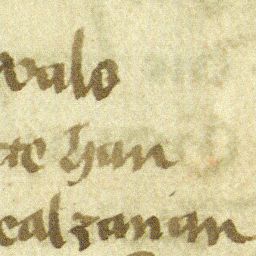 valo
te han
ealzanan